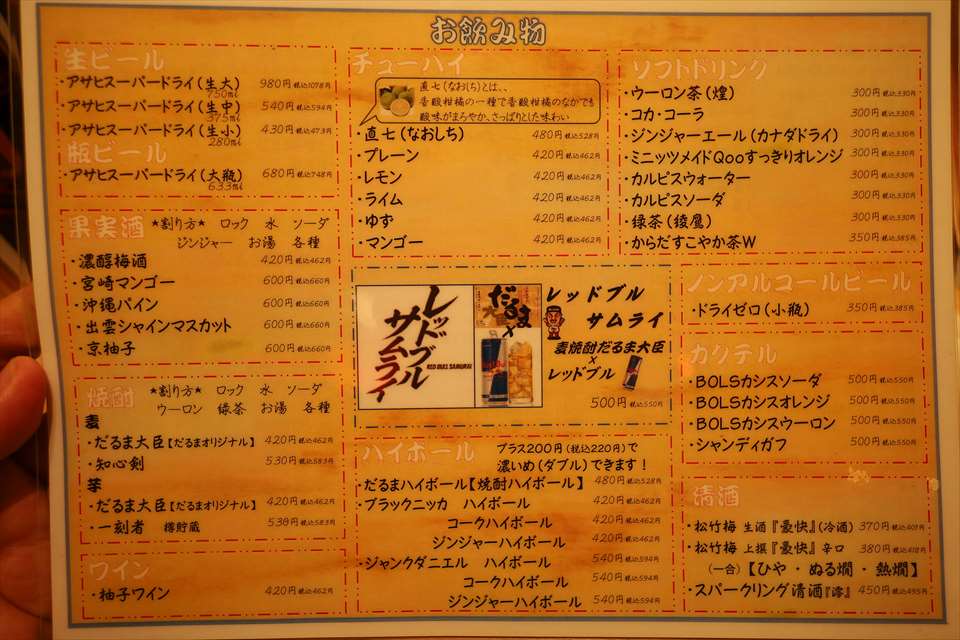 お飲み物
生ビール
・アサヒスーパードライ(生大) 980円 税込1078円
750ml
・アサヒスーパードライ(生中) 540円 税込594円
375ml
・アサヒスーパードライ(生小) 430円 税込473円
280ml
瓶ビール
・アサヒスーパードライ(大瓶) 680円 税込748円
633ml
果実酒 *割り方* ロック 水 ソーダ
ジンジャー お湯 各種
・濃醇梅酒 420円 税込462円
・宮崎マンゴー 600円 税込660円
・沖縄パイン 600円 税込660円
・出雲シャインマスカット 600円 税込660円
・京柚子 600円 税込660円
焼酎 *割り方* ロック 水 ソーダ
ウーロン 緑茶 お湯 各種
麦
・だるま大臣【だるまオリジナル】 420円 税込462円
・知心剣 530円 税込583円
芋
・だるま大臣【だるまオリジナル】 420円 税込462円
・一刻者 樽貯蔵 530円 税込583円
ワイン
・柚子ワイン 420円 税込462円
チューハイ
直七(なおしち)とは、、
香酸柑橘の一種で香酸柑橘のなかでも
酸味がまろやか、さっぱりとした味わい
・直七(なおしち) 480円 税込528円
・プレーン 420円 税込462円
・レモン 420円 税込462円
・ライム 420円 税込462円
・ゆず 420円 税込462円
・マンゴー 420円 税込462円
レッドブル
サムライ
RED BULL SAMURAI
だるま
×
レッドブル
サムライ
麦焼酎だるま大臣
×
レッドブル
500円 税込550円
ハイボール プラス200円(税込220円)で
濃いめ(ダブル)できます!
・だるまハイボール【焼酎ハイボール】 480円 税込528円
・ブラックニッカ ハイボール 420円 税込462円
コークハイボール 420円 税込462円
ジンジャーハイボール 420円 税込462円
・ジャックダニエル ハイボール 540円 税込594円
コークハイボール 540円 税込594円
ジンジャーハイボール 540円 税込594円
ソフトドリンク
・ウーロン茶(煌) 300円 税込330円
・コカ・コーラ 300円 税込330円
・ジンジャーエール(カナダドライ) 300円 税込330円
・ミニッツメイドQooすっきりオレンジ 300円 税込330円
・カルピスウォーター 300円 税込330円
・カルピスソーダ 300円 税込330円
・緑茶(綾鷹) 300円 税込330円
・からだすこやか茶W 350円 税込385円
ノンアルコールビール
・ドライゼロ(小瓶) 350円 税込385円
カクテル
・BOLSカシスソーダ 500円 税込550円
・BOLSカシスオレンジ 500円 税込550円
・BOLSカシスウーロン 500円 税込550円
・シャンディガフ 500円 税込550円
清酒
・松竹梅 生酒『豪快』(冷酒) 370円 税込407円
・松竹梅 上撰『豪快』辛口 380円 税込418円
(一合)【ひや・ぬる燗・熱燗】
・スパークリング清酒『澪』 450円 税込495円